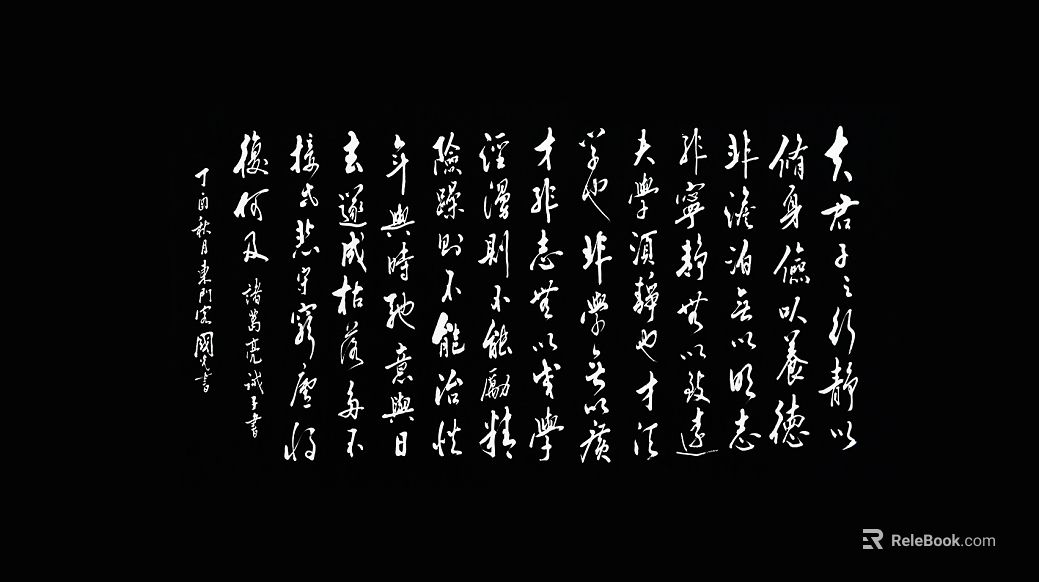 夫君子之行靜以
脩身儉以養德
非澹泊無以明志
非寧靜無以致遠
夫學須靜也才須
学也非學無以廣
才非志無以成學
淫漫則不能勵精
險躁則不能治性
年與時馳意與日
去遂成枯落多不
接世悲守窮廬將
復何及 諸葛亮誡子書
丁酉秋月東門客國光書
ReleBook.com